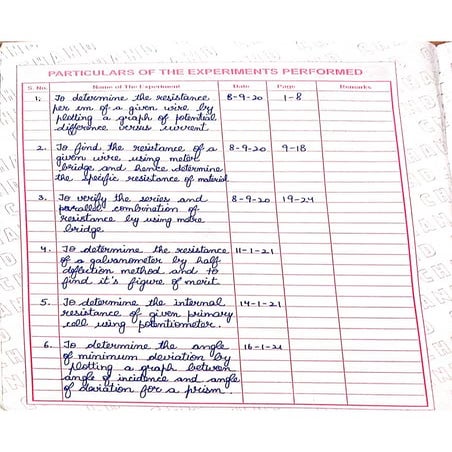 PARTICULARS OF THE EXPERIMENTS PERFORMED
S. No. Name of the Experiment Date Page Remarks
1. To determine the resistance 8-9-20 1-8
per cm of a given wire by
plotting a graph of potential
difference versus current
2. To find the resistance of a 8-9-20 9-18
given wire using meter
bridge and hence determine
the specific resistance of material
3. To verify the series and 8-9-20 19-24
parallel combination of
resistance by using metre
bridge
4. To determine the resistance 11-1-21
of a galvanometer by half
deflection method and to
find it's figure of merit
5. To determine the internal 14-1-21
resistance of given primary
cell using potentiometer.
6. To determine the angle 16-1-21
of minimum deviation by
plotting a graph between
angle of incidence and angle
of deviation for a prism.